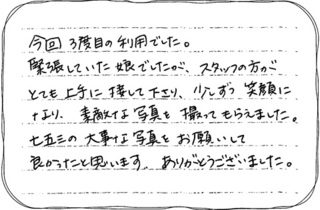 今回 3度目の利用でした。
緊張していた娘でしたが、スタッフの方が
とても上手に接して下さり、少しずつ笑顔に
なり、素敵な写真を撮ってもらえました。
七五三の大事な写真をお願いして
良かったと思います。ありがとうございました。